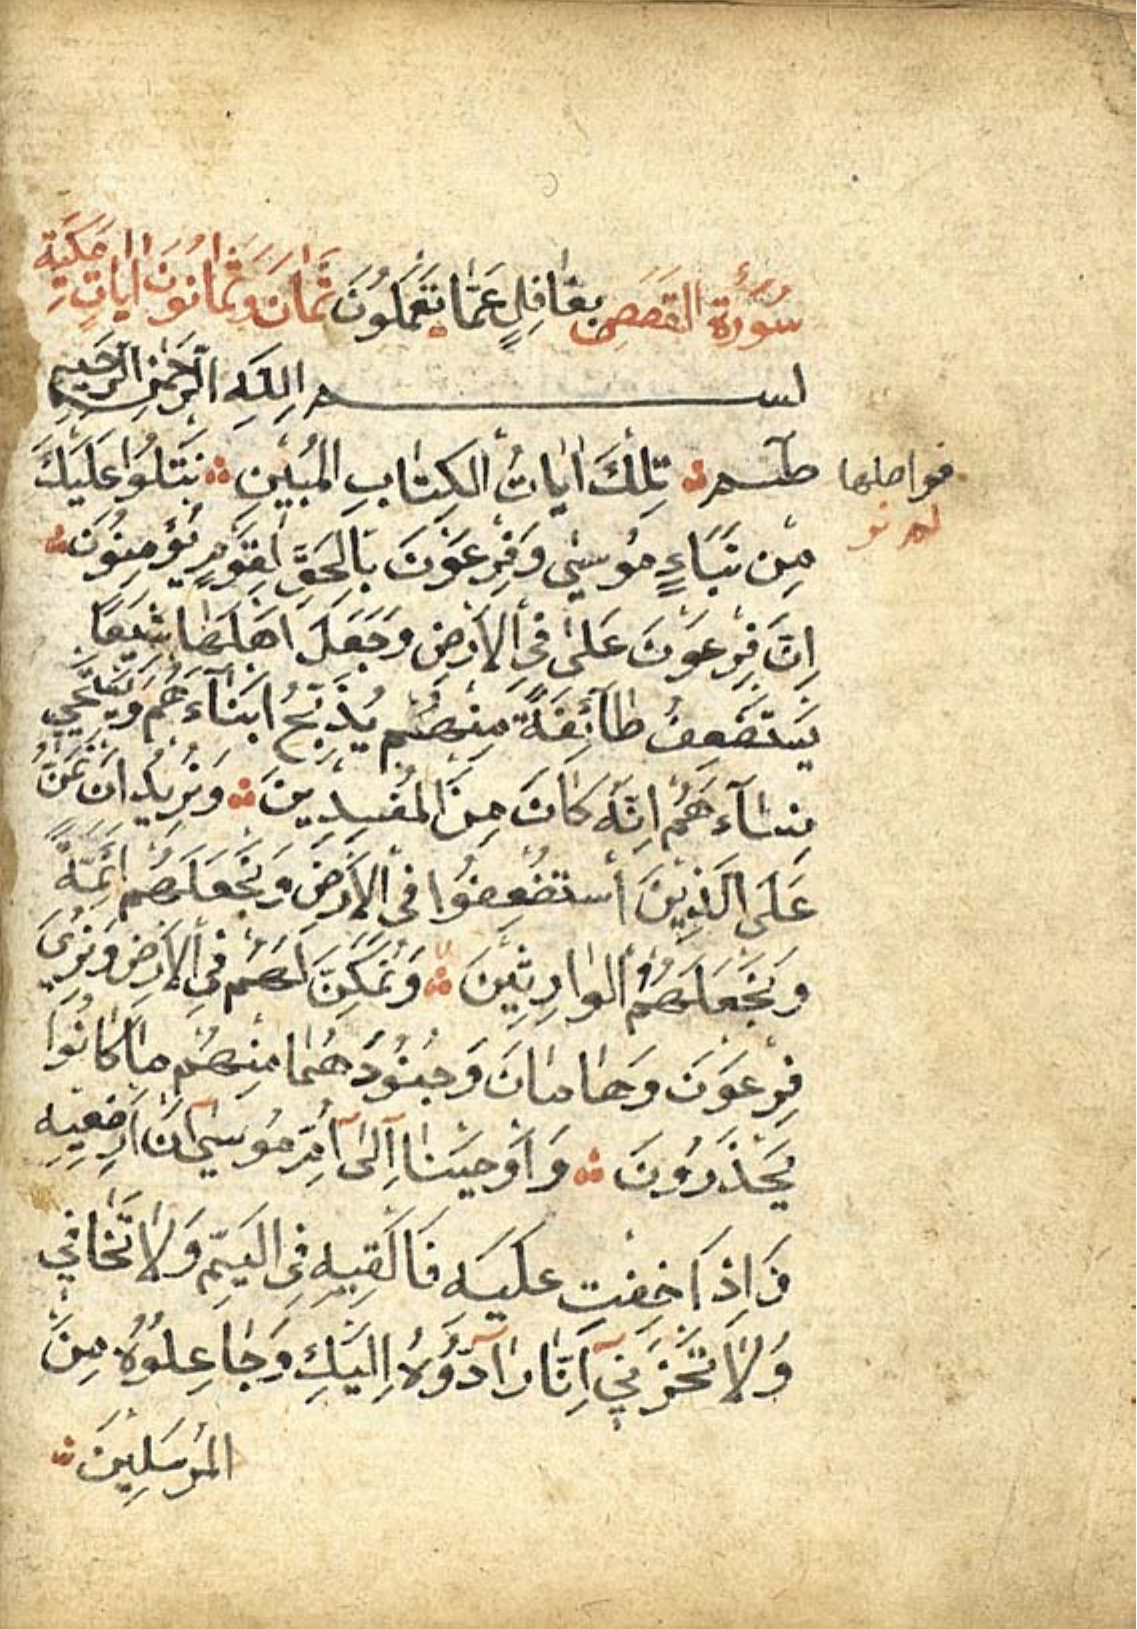 سُورَةُ القَصَصِ بِغَافِلٍ عَمَّا يَعْمَلُونَ ثَمَانَ وثَمَانُونَ ايَاتٍ مَكِيَّة
بسم اللَّهِ الرَّحْمٰنِ الرَّحِيمِ
طسم تِلْكَ ايَاتُ الْكِتَابِ الْمُبِينِ نَتْلُوا عَلَيْكَ
فواصلها
مِن نَبَاءِ مُوسٰى وَفِرْعَوْنَ بِالْحَقِّ لِقَوْمٍ يُؤْمِنُونَ
اِنَّ فِرْعَوْنَ عَلَى فِي الْاَرْضِ وَجَعَلَ اَهْلَهَا شِيَعًا
يَسْتَضْعِفُ طَآئِفَةً مِنْهُمْ يُذَبِّحُ ابْنَآءَهُمْ وَيَسْتَحْيِي
نِسَآءَهُمْ اِنَّهُ كَانَ مِنَ الْمُفْسِدِينَ وَنُرِيدُ اَنْ نَمُنَّ
عَلَى الَّذِينَ اسْتُضْعِفُوا فِي الْاَرْضِ وَنَجْعَلَهُمْ اَئِمَّةً
وَنَجْعَلَهُمُ الْوَارِثِينَ وَنُمَكِّنَ لَهُمْ فِي الْاَرْضِ وَنُرِيَ
فِرْعَوْنَ وَهَامَانَ وَجُنُودَهُمَا مِنْهُمْ مَا كَانُوا
يَحْذَرُونَ وَاَوْحَيْنَا اِلَى اُمِّ مُوسٰى اَنْ اَرْضِعِيهِ
فَاِذَا خِفْتِ عَلَيْهِ فَاَلْقِيهِ فِي الْيَمِّ وَلَا تَخَافِي
وَلَا تَحْزَنِي اِنَّا رَآدُّوهُ اِلَيْكِ وَجَاعِلُوهُ مِنَ
الْمُرْسَلِينَ